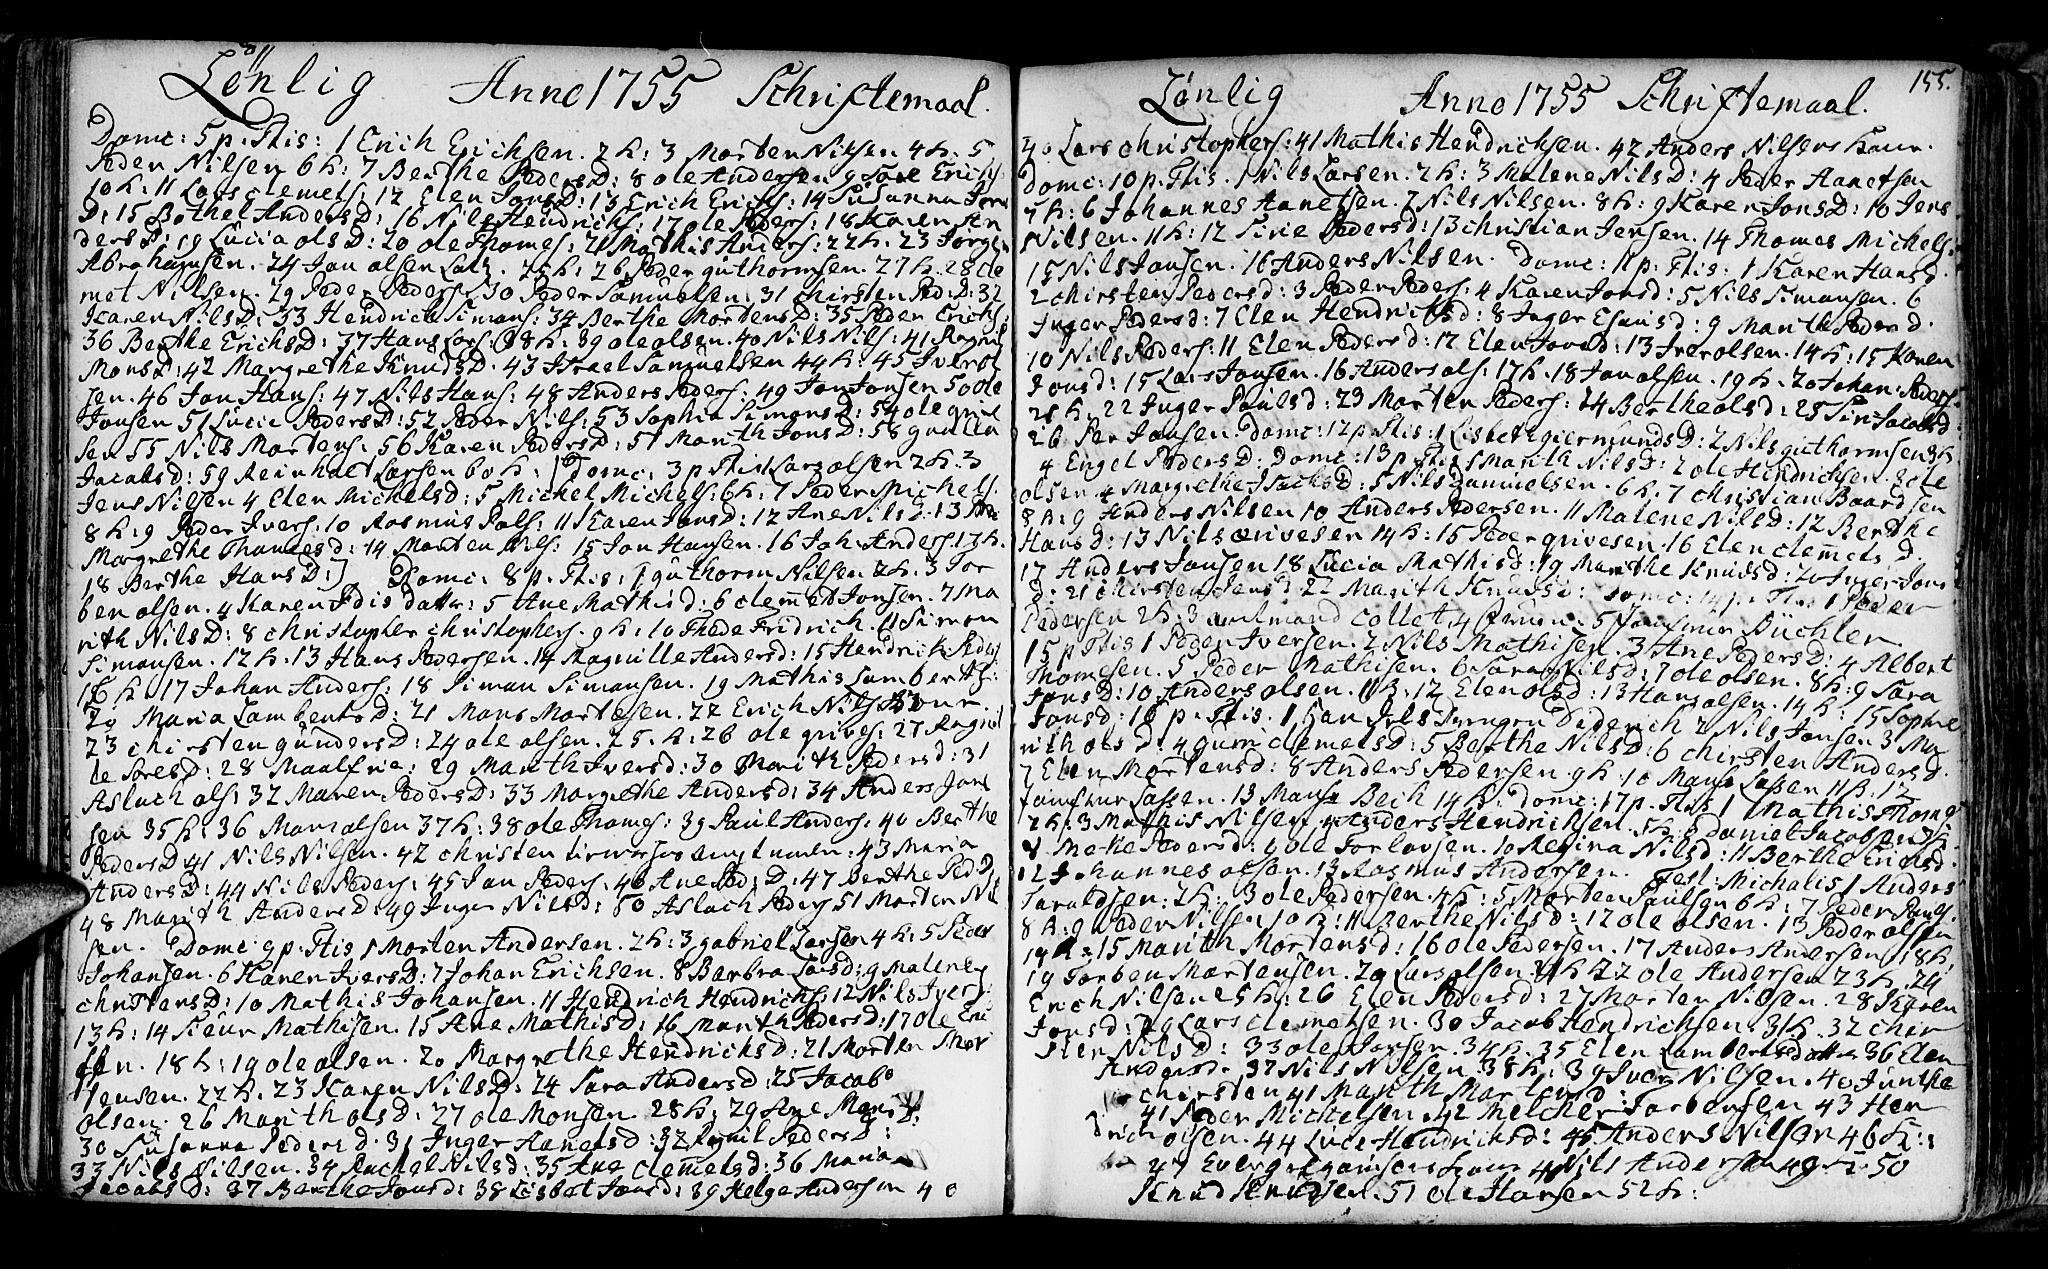 Lönlig Anno 1755 Schriftemaal.
Domc: 5 p. Ttis: 1 Erich Erichsen. 2 K: 3 Morten Nilsen. 4 K. 5
Peder Nilsen 6 K: 7 Berthe PedersD: 8 ole Andersen 9 Tore Erichs:
10 K: 11 Lars Clemets: 12 Elen JonsD: 13 Erich Erichs: 14 Susanna Jons
D: 15 Bothel AndersD: 16 Nils Hendrichs: 17 ole Peders: 18 Karen An
dersD: 19 Lucia olsD: 20 ole Thomes: 21 Mathis Anders: 22 K. 23 Jorgen
Abrahamsen. 24 Jan olsen 25 K: 26 Peder guthormsen. 27 K. 28 Cle
met Nilsen. 29 Peder Peders. 30 Peder Samuelsen: 31 Chirsten Ped:D: 32
Karen NilsD: 33 Hendrich Simans: 34 Berthe MortensD: 35 Peder Erichs:
36 Berthe ErichsD: 37 Hans Lars: 38 K: 39 ole olsen. 40 Nils Nils: 41 Ragnil
MonsD: 42 Margrethe KnudsD. 43 Israel Samuelsen 44 K: 45 Iver ol
sen. 46 Jon Hans: 47 Nils Hans: 48 Anders Peders: 49 Jon Jonsen 50 ole
Jonsen 51 Lucie PedersD: 52 Peder Nils: 53 Sophia SimonsD: 54 ole grue
sen 55 Nils Mortens: 56 Karen PedersD: 57 Marith JonsD: 58 gunilla
Jacobsd: 59 Reinholt Larsen 60 K: [Domc: 3 p Ttis 1 Lars olsen 2 K. 3
Jens Nilsen 4 Elen Michelsd: 5 Michel Michels: 6 K: 7 Peder Michels.
8 K: 9 Peder Ivers. 10 Rasmus Pals: 11 Karen JonsD: 12 Ane NilsD: 13
Margrethe Thomesd: 14 Morten Nils: 15 Jon Hansen. 16 Joh: Anders: 17 K.
18 Berthe HansD:] Domc: 8 p. Ttis: 1 guthorm Nilsen 2 K. 3 Tor
ben olsen. 4 Karen Idis datter: 5 Ane Mathisd: 6 Clemet Jonsen. 7 Ma
rith NilsD: 8 Christopher Christophers. 9 K: 10 Thede Fridrich. 11 Simon
Simonsen. 12 K. 13 Hans Pedersen. 14 Magnille Andersd: 15 Hendrich Peders
16 K 17 Johan Anders: 18 Siman Simansen. 19 Mathis Lambertsz:
20 Maria LambertsD: 21 Mons Mortesen. 22 Erich Nils
23 Chirsten gundersD: 24 ole olsen. 25. K: 26 ole grives: 27 Ragnil
le ToresD: 28 Maalfrie: 29 Marith Iversd: 30 Marith Pedersd: 31
Aslach ols: 32 Maren PedersD: 33 Margrethe Andersd: 34 Anders Jon
sen 35 K: 36 Mons olsen 37 K: 38 ole Thomes: 39 Paul Anders: 40 Berthe
PedersD 41 Nils Nilsen. 42 Christen 43 Maria
AndersD: 44 Nils Peders: 45 Jon Peders: 46 Ane Ped:D: 47 Berthe Ped:D
48 Marith AndersD: 49 Inger Nilsd: 50 Aslach Peders 51 Morten Nil
sen. Domc: 9 p. Ttis 1 Morten Andersen. 2 K: 3 gabriel Larsen 4 K: 5 Peder
Johansen. 6 Karen IversD: 7 Johan Erichsen. 8 Barbra Larsd: 9 Malene
ChristensD: 10 Mathis Johansen. 11 Hendrich Hendrichs: 12 Nils Ivers:
13 K: 14 Steur Mathisen. 15 Ane MathisD: 16 Marith PedersD: 17 ole Eri
sen. 18 K: 19 ole olsen. 20 Margrethe HendricksD: 21 Morten Mor
tensen. 22 K. 23 Karen NilsD: 24 Sara AndersD: 25 Jacob
olsen. 26 Marith olsD: 27 ole Monsen. 28 K: 29 Ane MonsD:
30 Susanna PedersD. 31 Inger Aanelsd: 32 Ragnil PedersD:
33 Nils Nilsen. 34 Rachel Nilsd: 35 Ane Clemetsd: 36 Maria
JacobsD: 37 Berthe JonsD: 38 Lisbet Jonsd: 39 Helge Andersen 40
Lönlig Anno 1755 Schriftemaal. 155.
40 Lars Christophers: 41 Mathis Hendrichsen. 42 Anders Nilsens Kone.
Domc: 10 p. Ttis. 1 Nils Larsen. 2 K: 3 Malene NilsD: 4 Peder Aanetsen
5 K: 6 Johannes Aanetsen. 7 Nils Nilsen. 8 K: 9 Karen JonsD: 10 Jens
Nilsen. 11 K: 12 Sirie Pedersd: 13 Christian Jensen. 14 Thomes Michels:
15 Nils Jonsen. 16 Anders Nilsen. Domc: 11 p: Ttis: 1 Karen Hansd.
2 Chirsten Pedersd: 3 Peder Peders: 4 Karen Jonsd: 5 Nils Simansen. 6
Inger Pedersd: 7 Elen Hendrichsd: 8 Inger Esaiisd: 9 Marith PedersD.
10 Nils Peders: 11 Elen Pedersd: 12 Elen Iversd: 13 Iver olsen. 14 K: 15 Karen
Jonsd: 15 Lars Jonsen. 16 Anders ols: 17 K. 18 Jon olsen. 19 K. 20 Johan: Peders
21 K. 22 Inger Paulsd: 23 Morten Peders: 24 Berthe olsd: 25 Siri Jacobsd:
26 Per Jonsen. Domc: 12 p. Ttis: 1 Lisbet giermundsD: 2 Nils guthormsen 3 K
4 Engel PedersD: Domc: 13 p. Ttis 1 Marith NilsD: 2 ole Hindrichsen. 3 ole
olsen. 4 Margrethe IsachsD: 5 Nils Samuelsen. 6 K: 7 Christian Baardsen
8 K: 9 Anders Nilsen 10 Anders Pedersen. 11 Malene Nilsd: 12 Berthe
Hansd: 13 Nils grivesen 14 K: 15 Peder grivesen. 16 Elen Clemets D.
17 Anders Jonsen 18 Lucia Mathisd: 19 Marithe Knudsd: 20 Inger Jons
D: 21 Chirsten Jensd 22 Marith Knudsd: Domc: 14 p: Ttis 1 Peder
Pedersen 2 K: 3 amtmand Collet, 4 Fruen: 5 Jomfrue Büchler
15 p Ttis 1 Peder Iversen. 2 Nils Mathisen. 3 Ane PedersD: 4 Albert
Thomesen. 5 Peder Mathisen. 6 Sara Nilsd: 7 ole olsen. 8 K: 9 Sara
JonsD: 10 Anders olsen. 11 K: 12 Elen olsd: 13 Hans olsen. 14 K: 15 Sophie
Jonsd: 16 p. Ttis. 1 Diderich 2 Nils Jonsen 3 Ma
rith olsD: 4 guri Clemetsd: 5 Berthe NilsD: 6 Chirsten Andersd.
7 Elen Mortensd: 8 Anders Pedersen. 9 K: 10 Mans Lassen 11 K: 12
Jomfrue Lassen. 13 Mans Bech 14 K: Domc: 17 p. Ttis 1 Mathis Thomes
2 K: 3 Mathis Nilsen. 4 Anders Hendrichsen. 5 K. 6 Daniel Jacobsen 7 K
8 Mette Pedersd: 9 ole Torlovsen. 10 Regina Nilsd: 11 Berthe Erichsd.
12 Johannes olsen. 13 Rasmus Andersen. Fest: Michalis 1 Anders
Taraldsen: 2 K: 3 ole Pedersen. 4 K: 5 Morten Paulsen 6 K: 7 Peder Pauls.
8 K: 9 Peder Nilsen 10 K: 11 Berthe Nilsd: 12 ole olsen. 13 Peder olsen
14 K: 15 Marith Mortensd: 16 ole Pedersen. 17 Anders Andersen 18 K,
19 Torben Mortensen. 20 Lars olsen 21 K 22 ole Andersen 23 K. 24
Erich Nilsen 25 K: 26 Elen Pedersd: 27 Morten Nilsen. 28 Karen
Jonsd: 29 Lars Clemetsen. 30 Jacob Hendrichsen. 31 K. 32 Chir
sten NilsD: 33 ole Jonsen. 34 K. 35 Elen Lambertsdatter 36 Elen
Andersd. 37 Nils Nilsen. 38 K: 39 Iver Nilsen. 40
Chirsten 41 Marith Mortensd:
41 Peder Michelsen. 42 Melcher Torbensen 43 Hen
drich olsen. 44 Luce Hendrichsd: 45 Anders Nilsen 46 K:
47 48 Nils Andersen 49 K 50
Knud Knudsen. 51 ole Hansen 52 K: